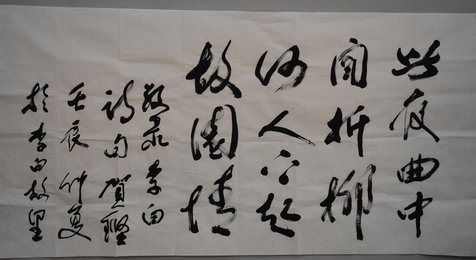 此夜曲中
闻折柳
何人不起
故園情
敬录李白
诗句贺
壬辰仲夏
於李白故里